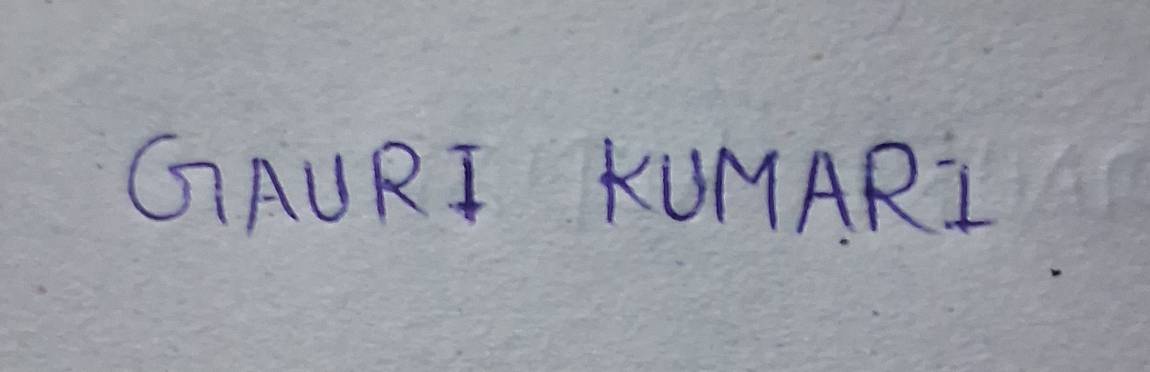 GAURI KUMARI